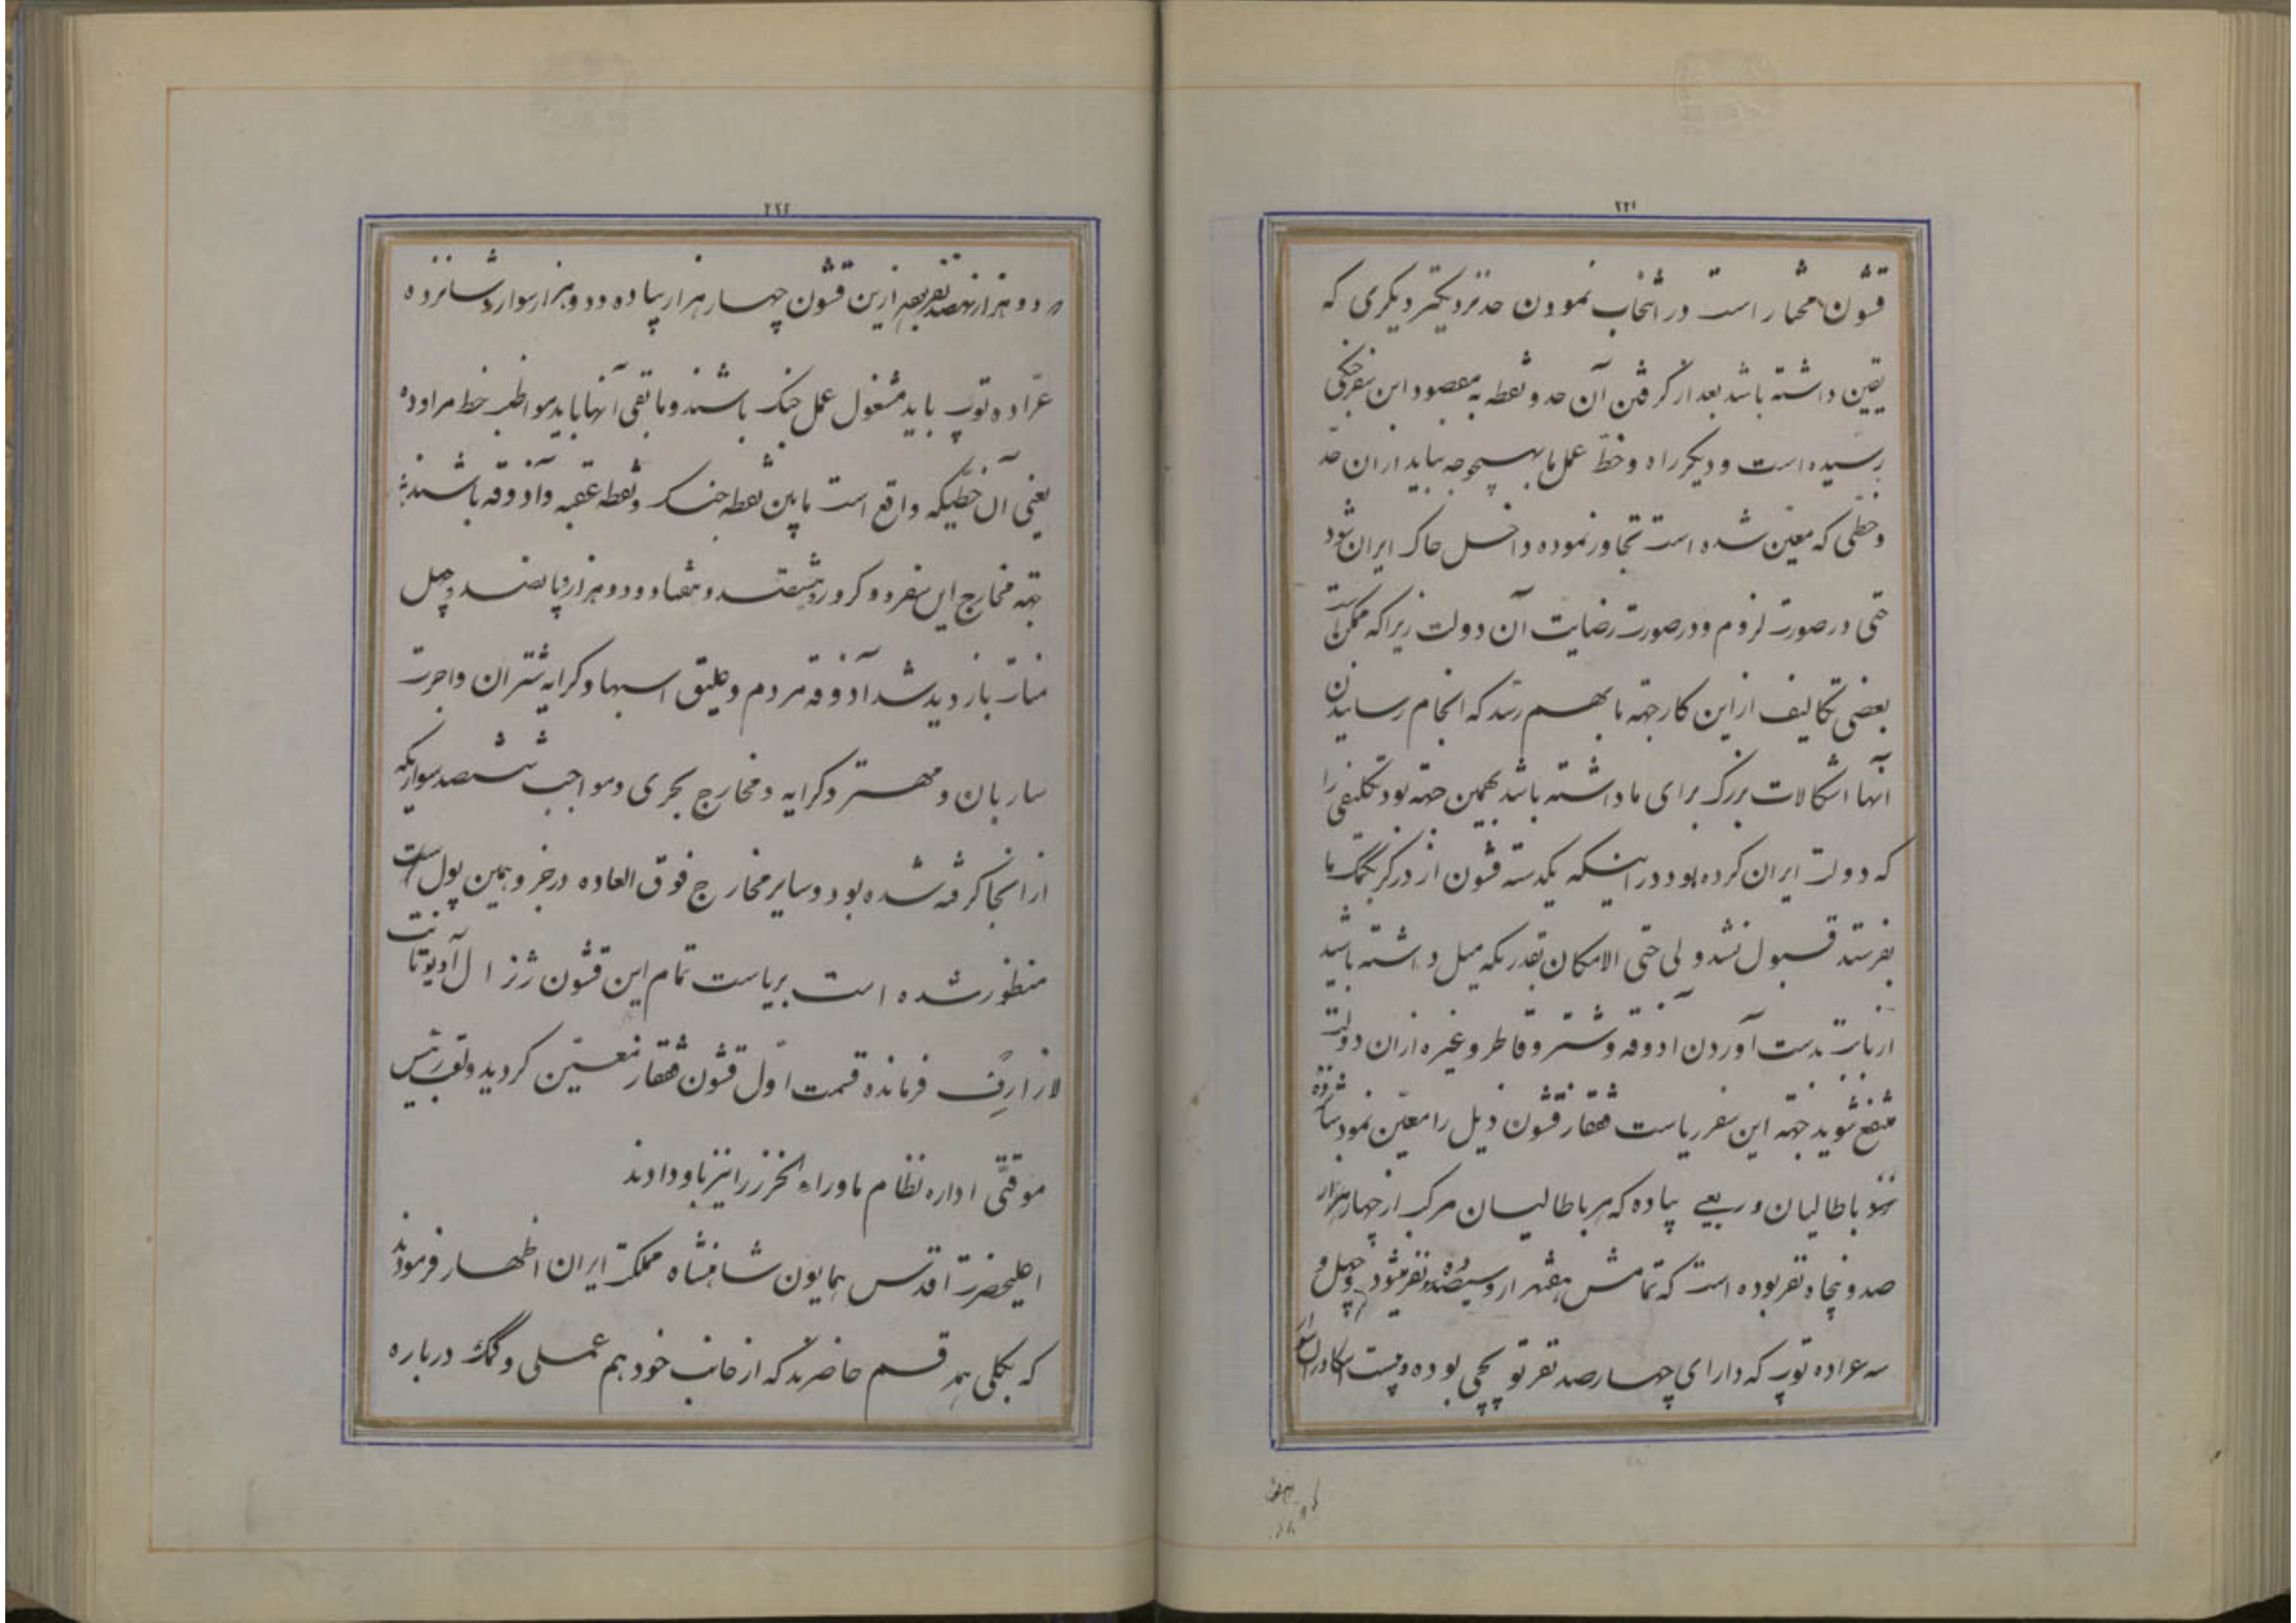 ۲۲۱
قشون مختار است در انتخاب نمودن حد نزدیکتر دیگری که
یقین داشته باشد بعد از گرفتن آن حد و نقطه به مقصود این سفر جنگی
رسیده است و دیگر راه و خط عمل ما بهیچوجه نباید از ان حد
و خطی که معین شده است تجاوز نموده داخل خاک ایران شود
حتی در صورت لزوم و در صورت رضایت آن دولت زیرا که ممکن است
بعضی تکالیف از این کار جهته ما بهم رسد که انجام رسانیدن
آنها اشکالات بزرگ برای ما داشته باشد بهمین جهته بود تکلیفی را
که دولت ایران کرده بود در اینکه یکدسته قشون از درگز بکمک ما
بفرستد قبول نشد ولی حتی الامکان بقدریکه میل داشته باشید
از بابت بدست آوردن آذوقه و شتر و قاطر و غیره از ان دولت
منتفع شوید جهته این سفر ریاست قفقاز قشون ذیل را معین نمود شانزده
باطالیان و ربعی پیاده که هر باطالیان مرکب از چهار هزار
صد و پنجاه نفر بوده است که تمامش هفهزار و سیصد نفر میشود و چهل و
سه عراده توپ که دارای چهارصد نفر توپچی بوده و بیست اسکادران سوار
۲۲۲
دو هزار نهصد نفر بقیه ازین قشون چهار هزار پیاده و دو هزار سوار و شانزده
عراده توپ باید مشغول عمل جنگ باشند و مابقی آنها باید مواظب خط مراوده
یعنی آن خطیکه واقع است مابین نقطه جنگ و نقطه عقبه و آذوقه باشند
جهته مخارج این سفر دو کرور و هشتصد و هفتاد و دو هزار و پانصد و چهل
منات بازدید شد آذوقه مردم و علیق اسبها و کرایه شتران و اجرت
ساربان و مهتر و کرایه و مخارج بحری و مواجب ششصد سواریکه
از انجا گرفته شده بود و سایر مخارج فوق العاده در جزو همین پول است
منظور شده است بریاست تمام این قشون ژنرال آدیوتانت
لازارف فرمانده قسمت اول قشون قفقاز معین گردید و لقب رئیس
موقتی اداره نظام ماوراء الخزر را نیز باو دادند
اعلیحضرت اقدس همایون شاهنشاه مملکت ایران اظهار فرمودند
که بکلی بهر قسم حاضرند که از جانب خود هم عملی و کمک درباره